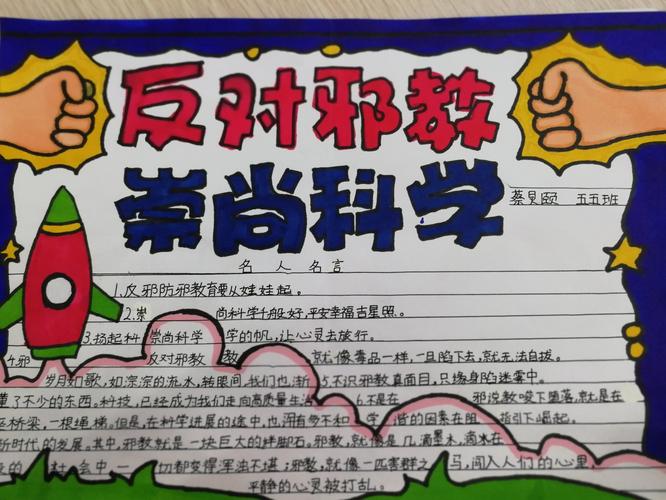 反对邪教
崇尚科学
蔡贝颐 五五班
名人名言
1.反邪防邪教育要从娃娃起。
2.崇 尚科学千般好,平安幸福吉星照。
3.扬起科 崇尚科学 学的帆,让心灵去旅行。
4.邪 反对邪教 教 就像毒品一样,一旦陷下去,就无法自拔。
岁月如歌,如淙淙的流水,转眼间,我们也渐 5.不识邪教真面目,只缘身陷迷雾中。
懂了不少的东西。科技,已经成为我们走向高质量生活 6.不是在 邪说教唆下堕落,就是在
座桥梁,一根绳梯。但是,在科学进展的途中,也拥有多不和 学 谐的因素在阻 指引下崛起。
新时代的发展。其中,邪教就是一块巨大的绊脚石。邪教,就像是几滴墨水,滴水在
社会中 一 切都变得浑浊不堪;邪教,就像一匹害群之 马,闯入人们的心里,
平静的心灵被打乱。